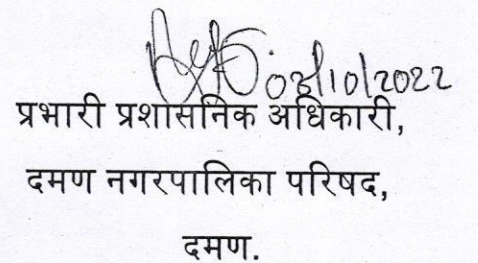 03/10/2022
प्रभारी प्रशासनिक अधिकारी,
दमण नगरपालिका परिषद,
दमण.